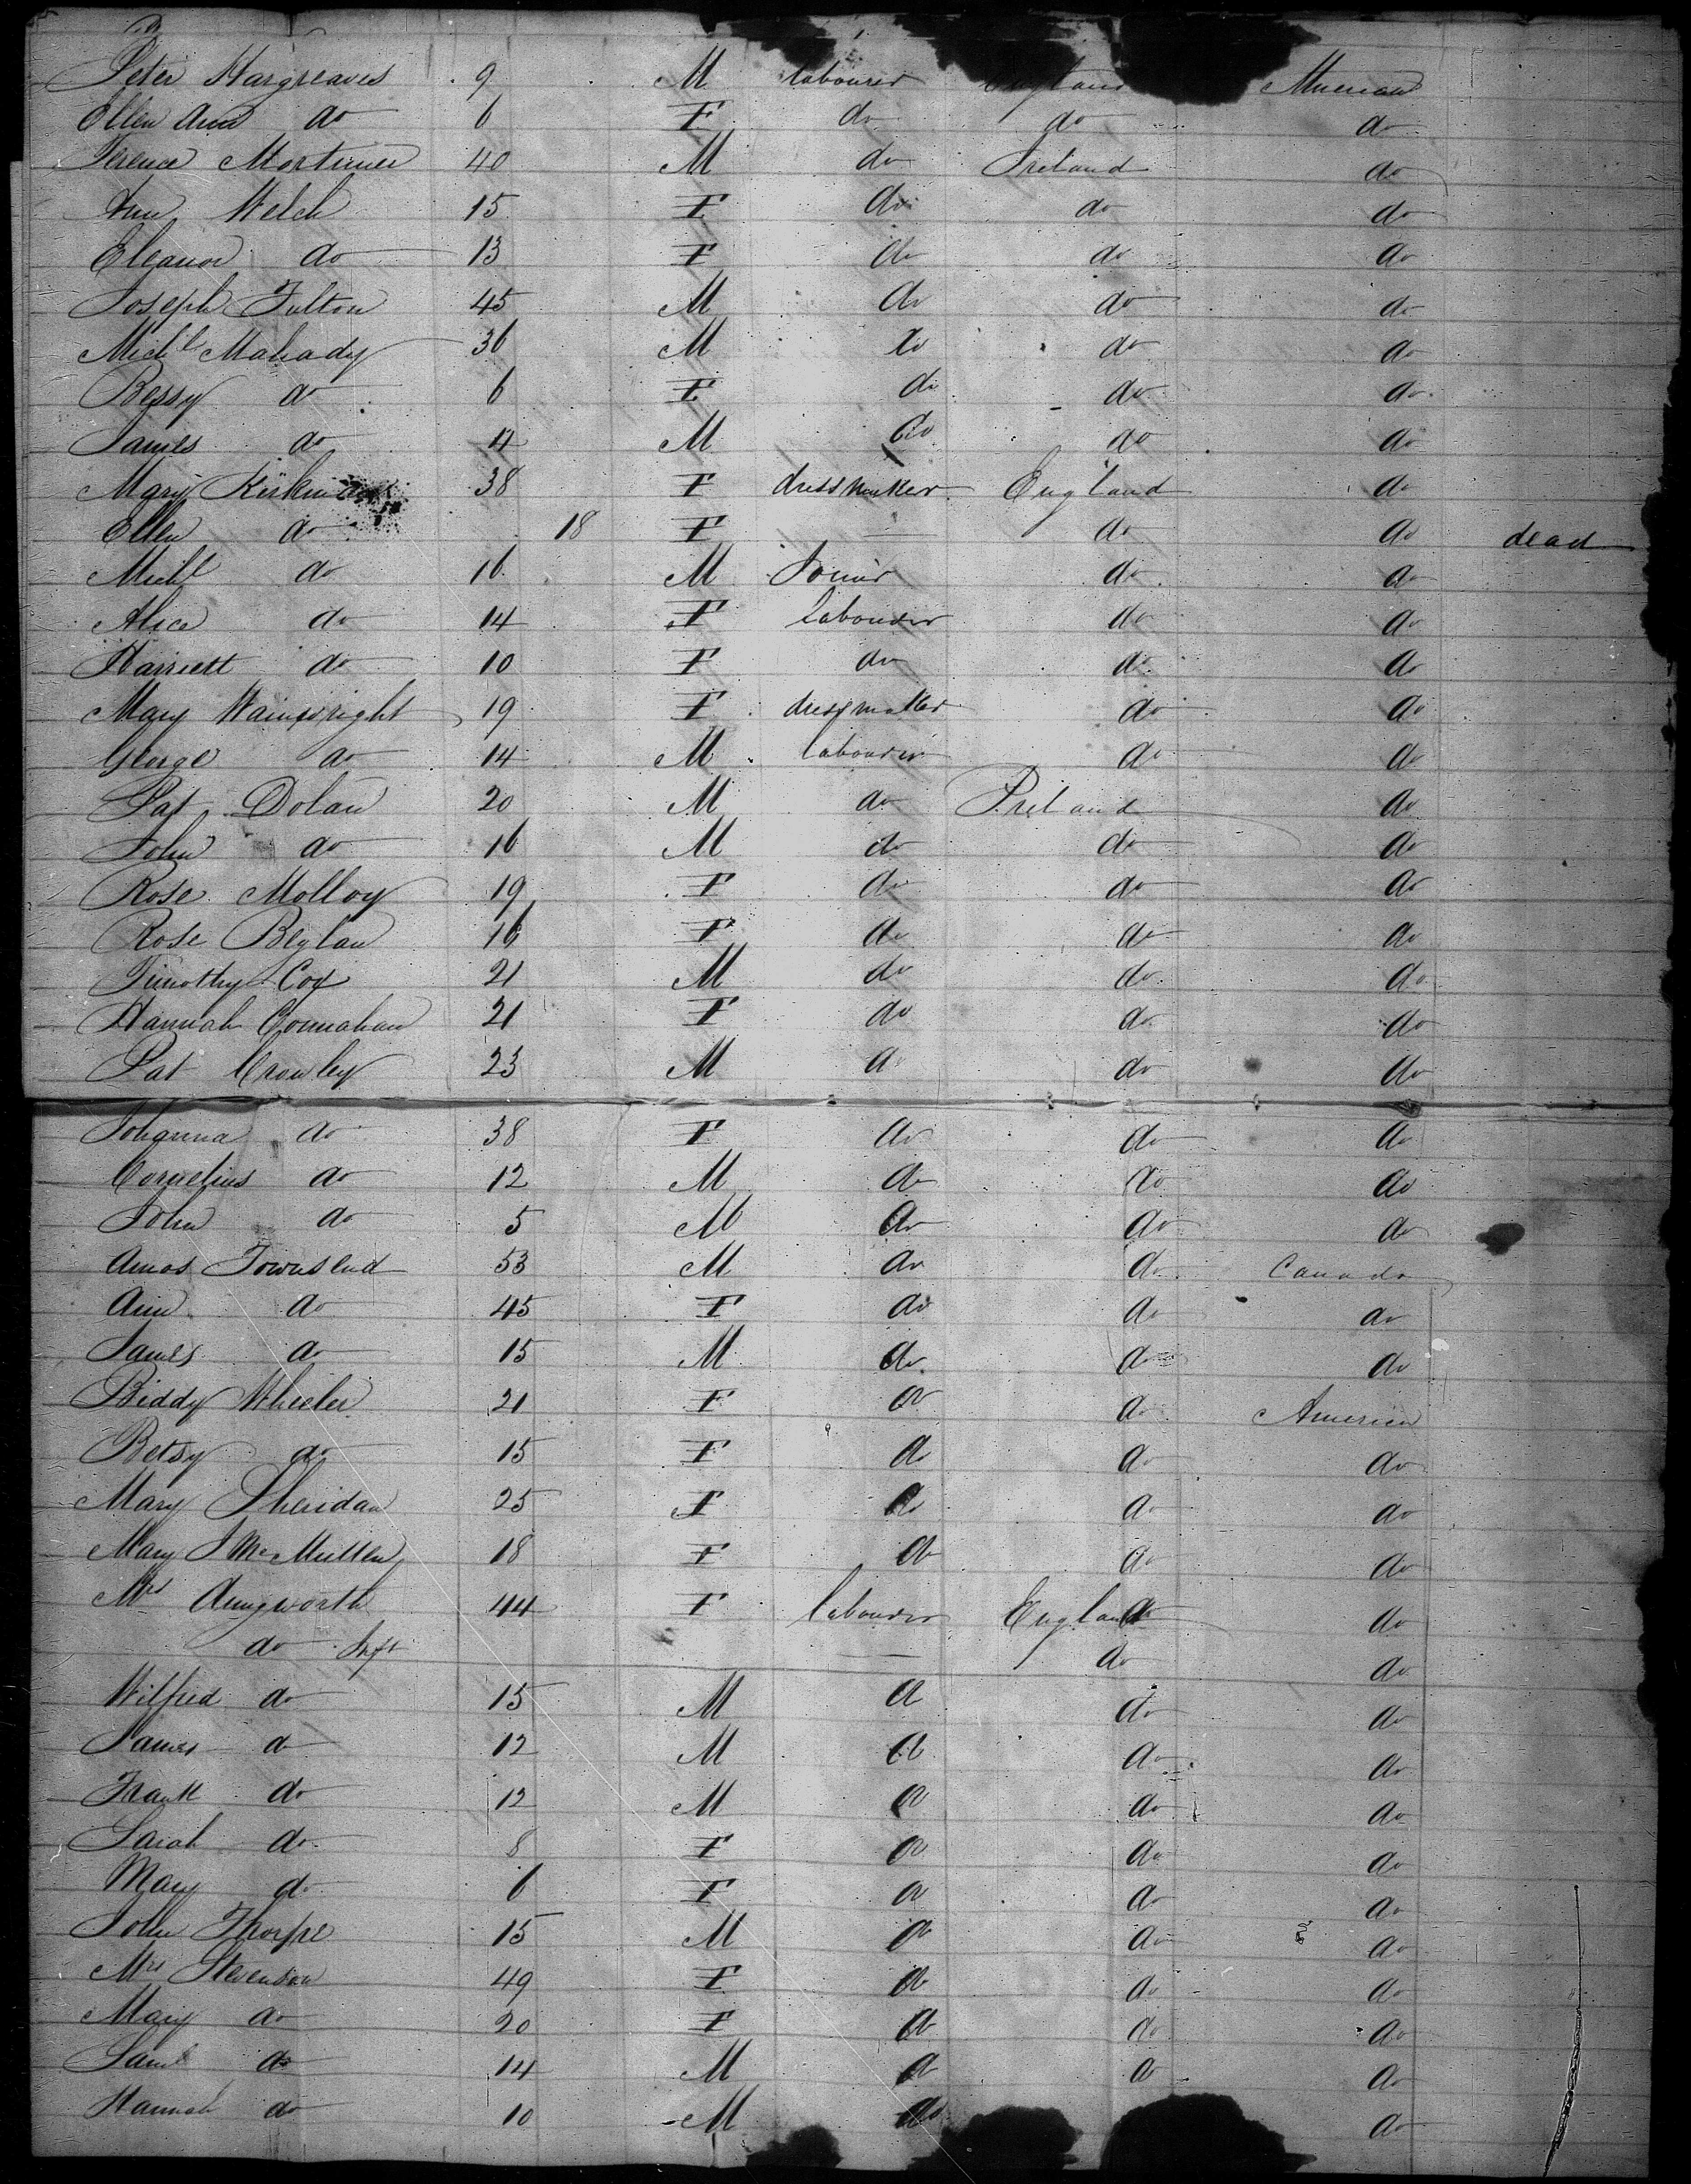 Peter Hargreaves 9 M labourer England American
Ellen Ann do 6 F do do do
Terence Mortimer 40 M do Ireland do
Ann Welch 15 F do do do
Eleanor do 13 F do do do
Joseph Fulton 45 M do do do
Michl Mahady 36 M do do do
Bessy do 6 F do do do
James do 4 M do do do
Mary Kirkman 38 F dressmaker England do
Ellen do 18 F — do do dead
Michl do 16 M Joiner do do
Alice do 14 F labourer do do
Harriett do 10 F do do do
Mary Wainwright 19 F dressmaker do do
George do 14 M labourer do do
Pat Dolan 20 M do Ireland do
John do 16 M do do do
Rose Molloy 19 F do do do
Rose Beglan 16 F do do do
Timothy Cox 21 M do do do
Hannah Connahan 21 F do do do
Pat Crowley 23 M do do do
Johanna do 38 F do do do
Cornelius do 12 M do do do
John do 5 M do do do
Amos Townsend 53 M do do Canada
Ann do 45 F do do do
James do 15 M do do do
Biddy Wheeler 21 F do do America
Betsy do 15 F do do do
Mary Sheridan 25 F do do do
Mary J McMullen 18 F do do do
Mrs Aungworth 44 F labourer England do
do Inft — do do
Wilfred do 15 M do do do
James do 12 M do do do
Frank do 12 M do do do
Sarah do 8 F do do do
Mary do 6 F do do do
John Thorpe 15 M do do do
Mrs Stevenson 49 F do do do
Mary do 20 F do do do
Saml do 14 M do do do
Hannah do 10 M do do